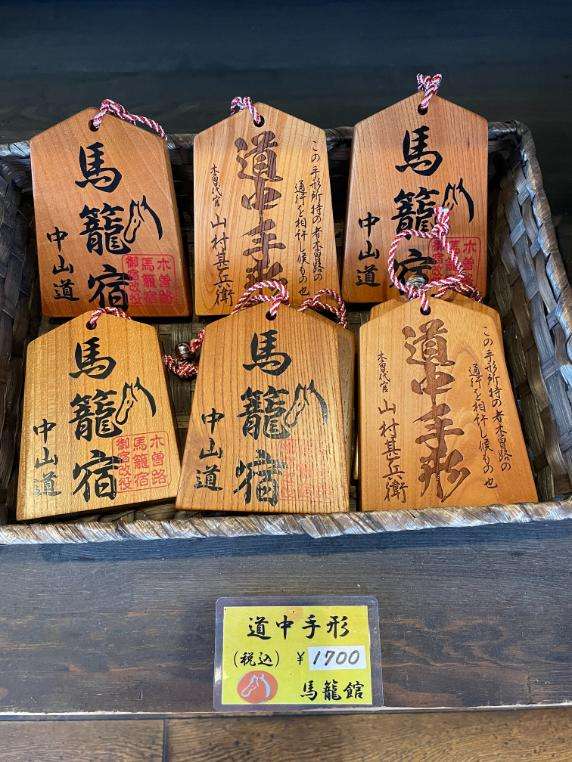 馬籠宿
中山道
木曽路
馬籠宿
御宿改役
この手形所持の者木曽路の
通行を相許し候もの也
道中手形
木曽代官 山村甚兵衛
馬籠宿
中山道
木曽路
馬籠宿
御宿改役
馬籠宿
中山道
木曽路
馬籠宿
御宿改役
馬籠宿
中山道
この手形所持の者木曽路の
通行を相許し候もの也
道中手形
木曽代官 山村甚兵衛
道中手形
(税込) ¥1700
馬籠館